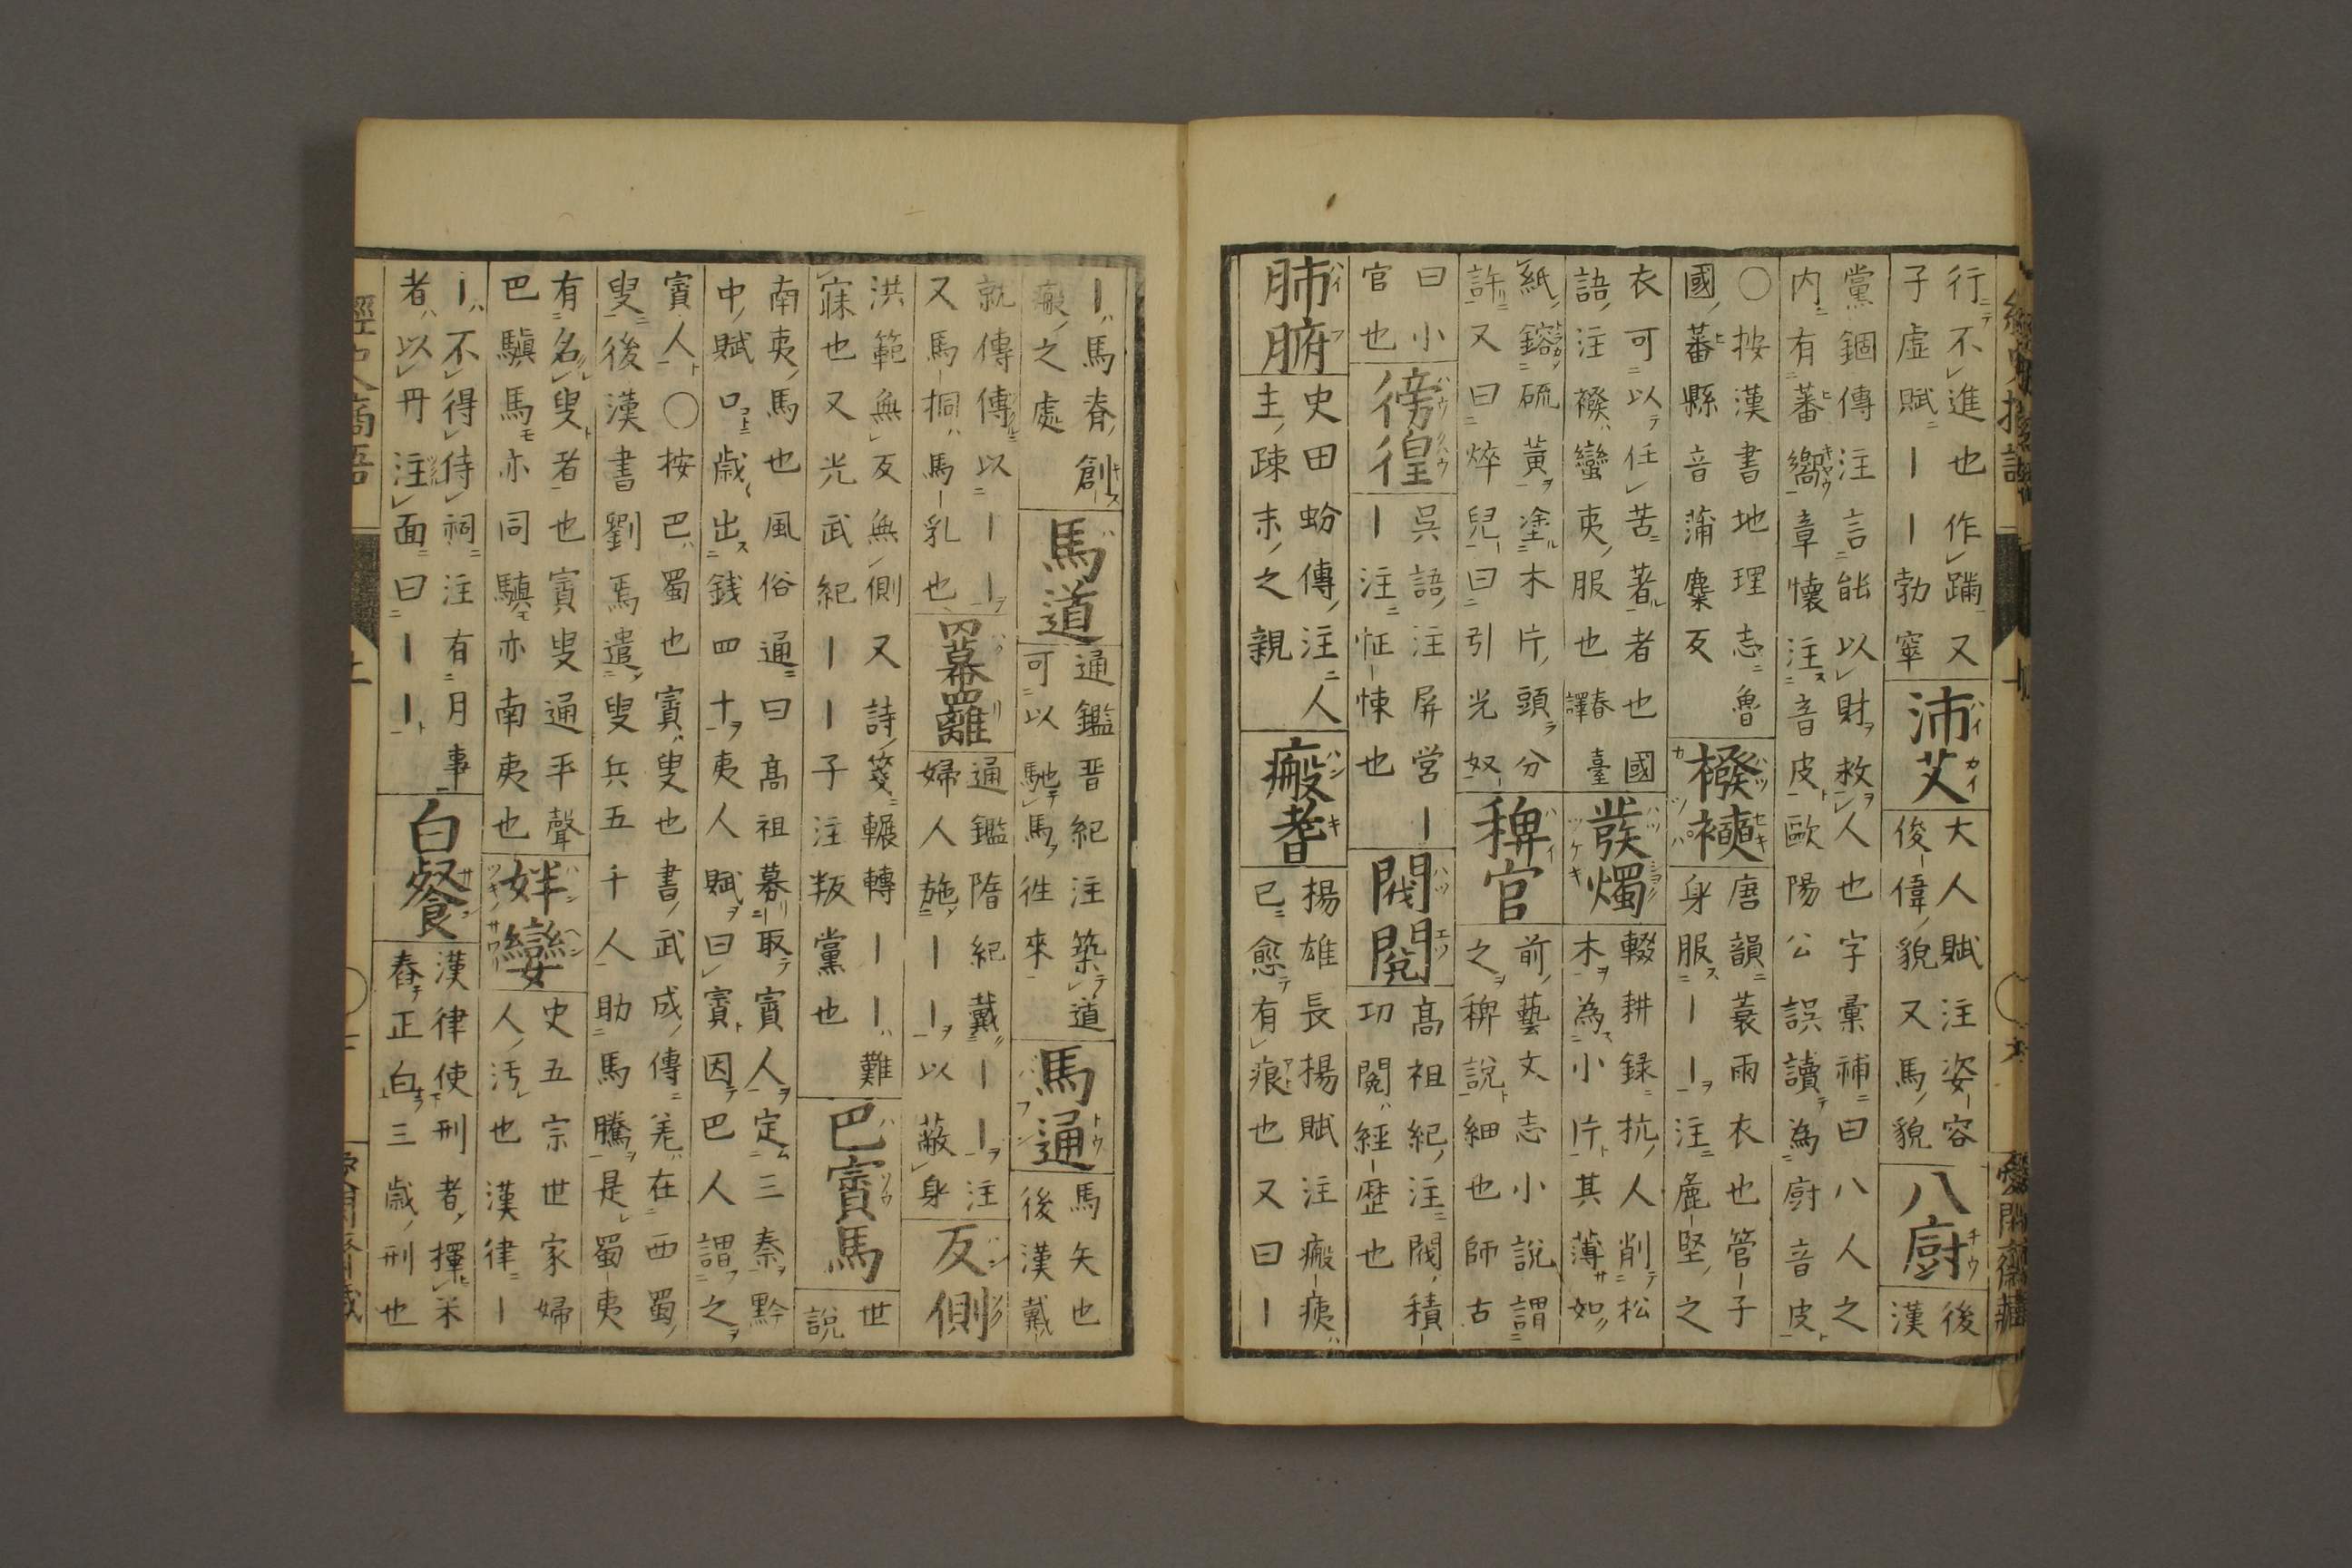 行不進也作蹣又
子虚賦｜｜勃窣
沛艾
大人賦注姿容
俊偉貌又馬貌
八廚
後
漢
黨錮傳注言能以財救人也字彙補曰八人之
内有蕃嚮章懷注音皮歐陽公誤讀為廚音皮
○按漢書地理志魯
國蕃縣音蒲麋反
襏襫
唐韻蓑雨衣也管子
身服｜｜注麁堅之
衣可以任苦著者也國
語注襏蠻夷服也譯春臺
發燭
輟耕録杭人削松
木為小片其薄如
紙鎔硫黄塗木片頭分
許又曰焠兒曰引光奴
稗官
前藝文志小説謂
之稗説細也師古
曰小
官也
徬徨
呉語注屏営｜
｜注怔悚也
閥閲
高祖紀注閥積
功閲經歴也
肺腑
史田蚡傳注人
主疎末之親
瘢耆
揚雄長楊賦注瘢痍
已愈有痕也又曰｜
｜馬脊創
瘢之處
馬道
通鑑晋紀注築道
可以馳馬往來
馬通
馬矢也
後漢戴
就傳傳以｜｜
又馬桐馬乳也
冪䍦
通鑑隋紀戴｜｜注
婦人施｜｜以蔽身
反側
洪範無反無側又詩箋輾轉｜｜難
寐也又光武紀｜｜子注叛黨也
巴賨馬
世
説
南夷馬也風俗通曰高祖募取賨人定三秦黔
中賦口歳出銭四十夷人賦曰賨因巴人謂之
賨人○按巴蜀也賨叟也書武成傳羌在西蜀
叟後漢書劉焉遣叟兵五千人助馬騰是蜀夷
有名叟者也賨叟通平聲
巴䮾馬亦同䮾亦南夷也
姅孌
史五宗世家婦
人汚也漢律｜
｜不得侍祠注有月事
者以丹注面曰｜｜
白粲
漢律使刑者擇米
舂正白三歳刑也